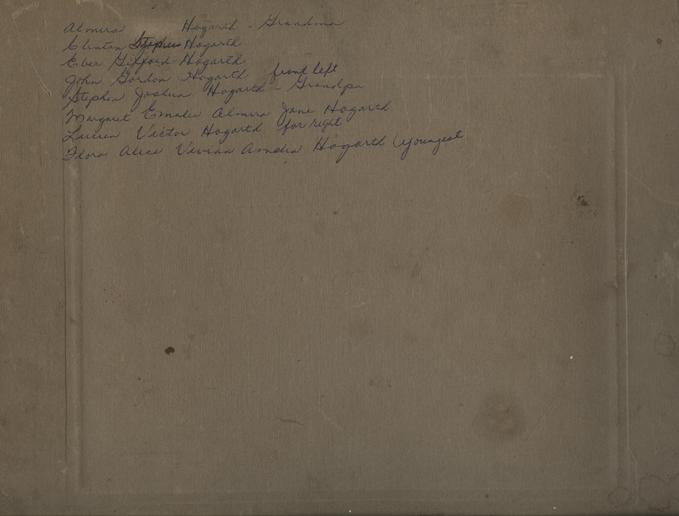 Almira Hogarth - Grandma
Clinton Stephen Hogarth
Eber Gifford Hogarth
John Gordon Hogarth front left
Stephen Joshua Hogarth - Grandpa
Margaret Emalie Almira Jane Hogarth
Lucien Victor Hogarth far right
Flora Alice Vivian Amelia Hogarth (youngest